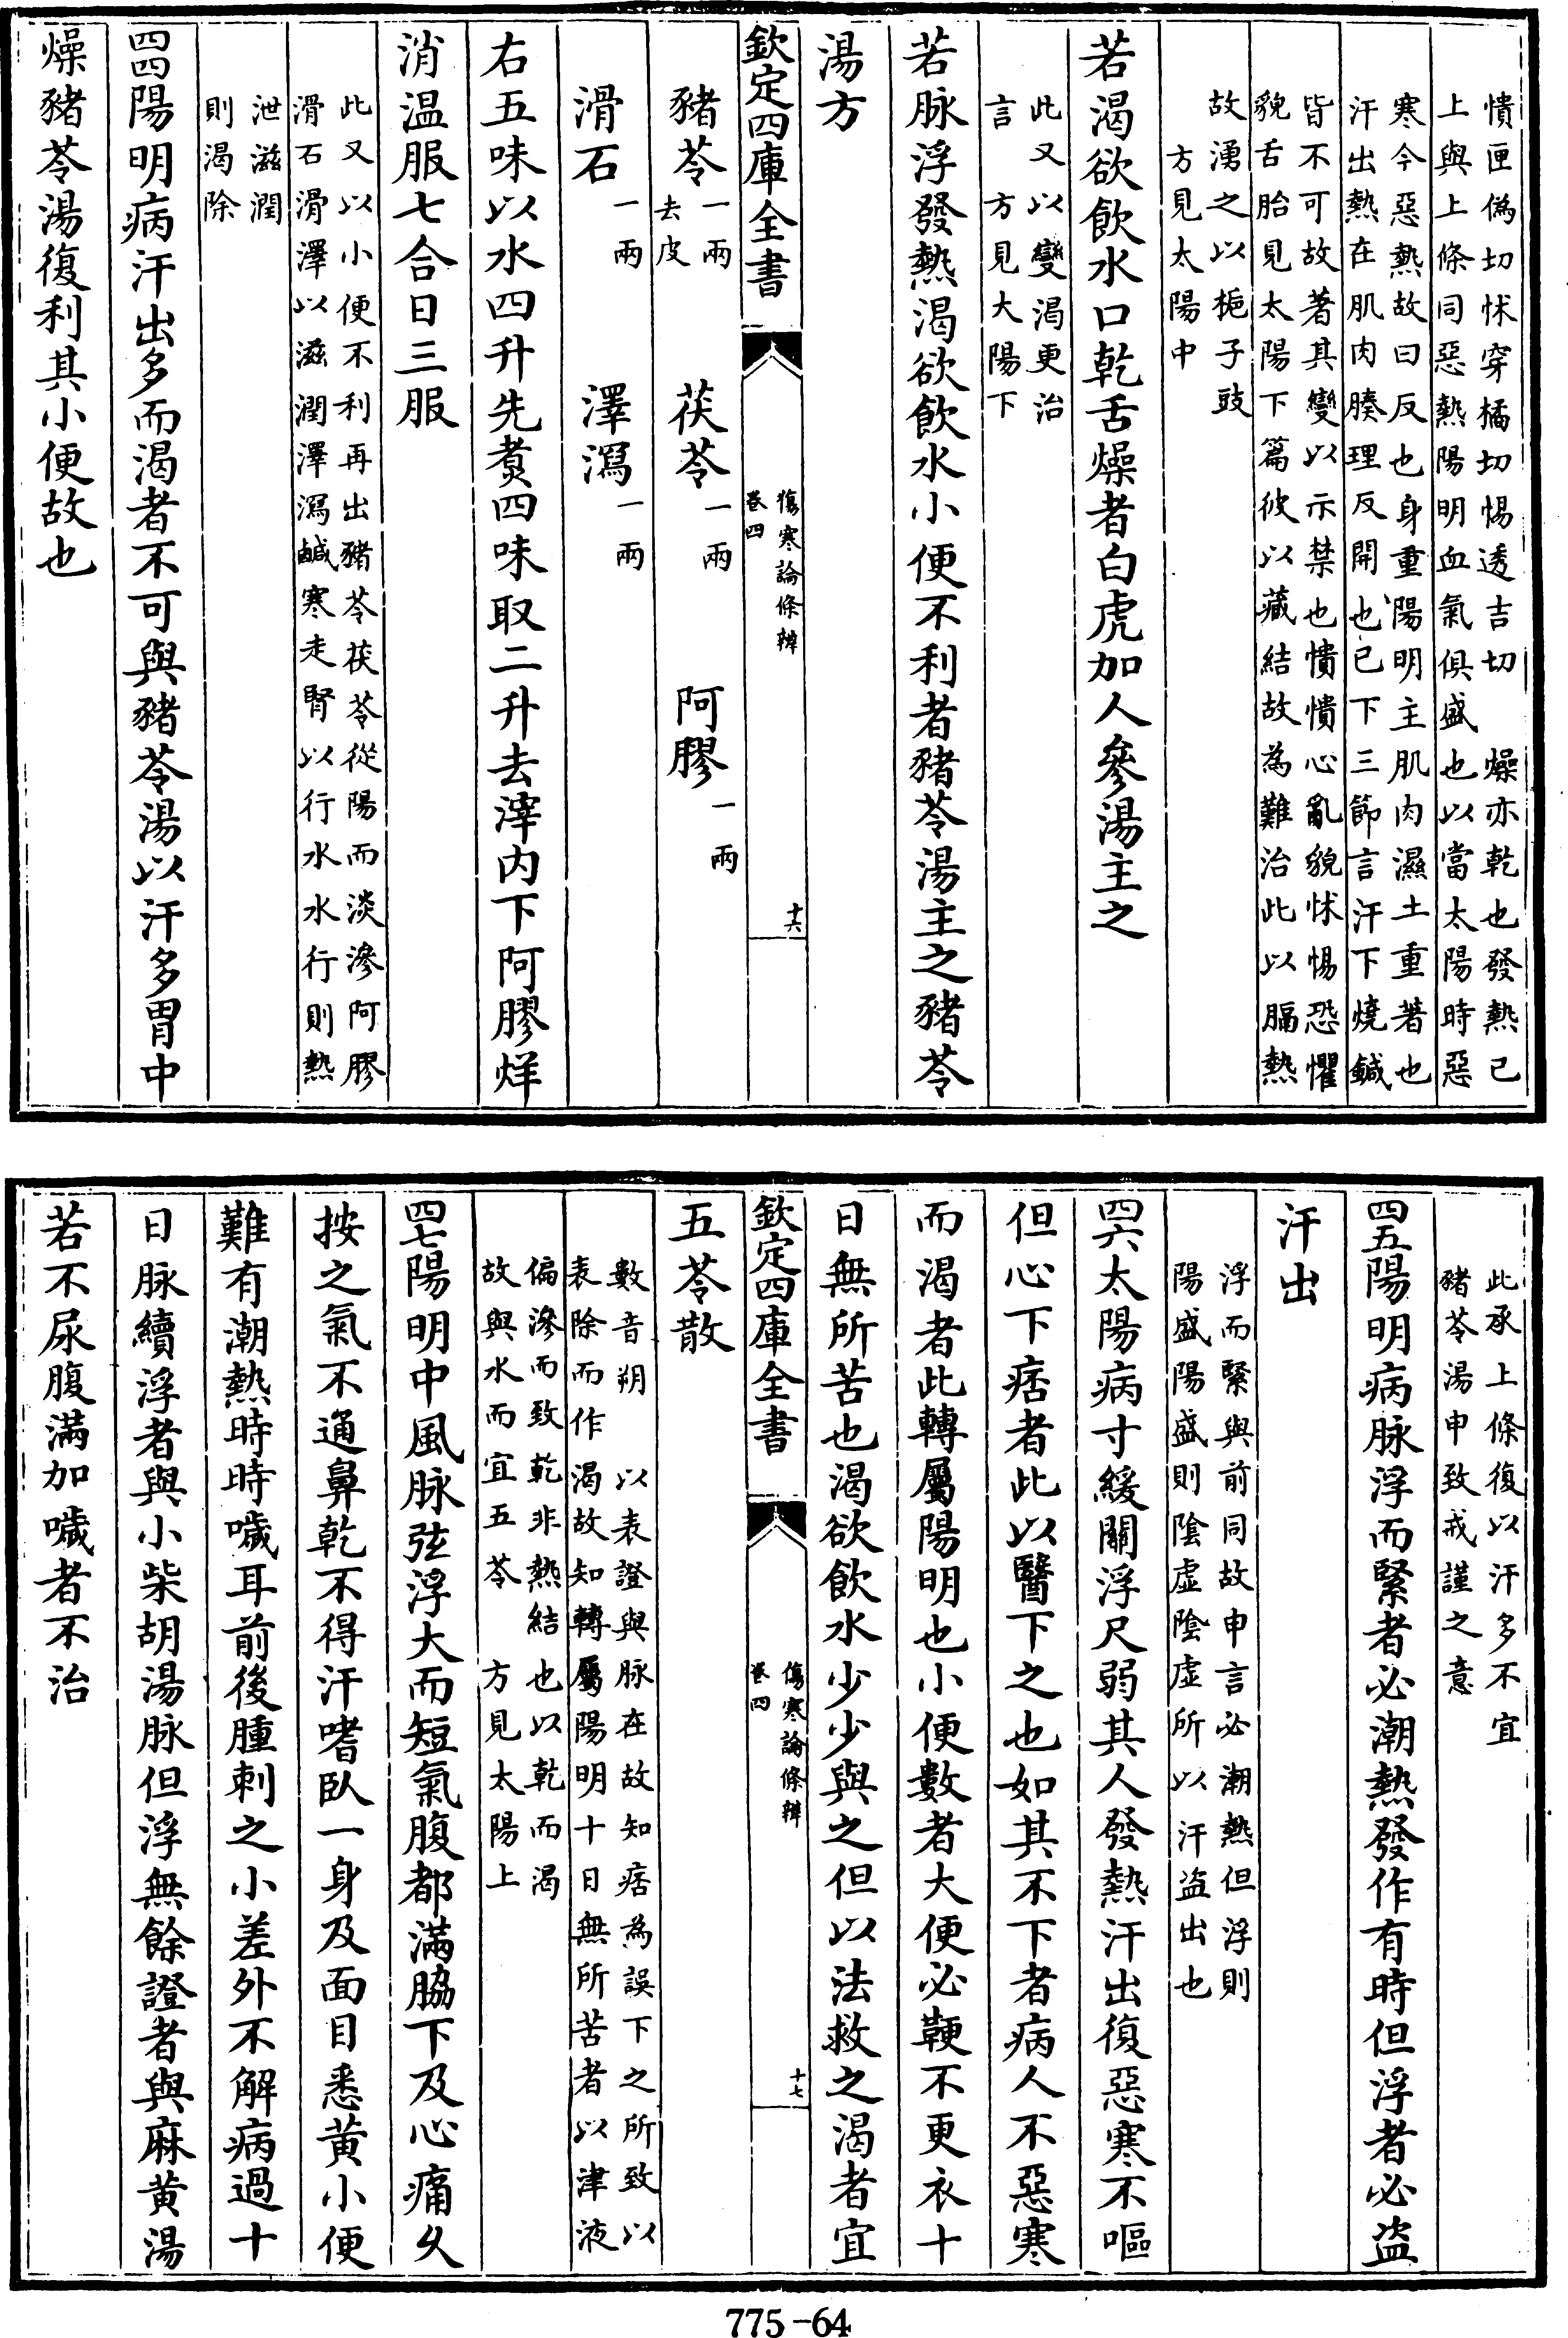 憒匣僞切怵穿橘切惕透吉切　燥亦乾也發熱已
上與上條同惡熱陽明血氣俱盛也以當太陽時惡
寒今惡熱故曰反也身重陽明主肌肉濕土重著也
汗出熱在肌肉腠理反開也已下三節言汗下燒鍼
皆不可故著其變以示禁也憒憒心亂貌怵惕恐懼
貌舌胎見太陽下篇彼以藏結故為難治此以膈熱
故湧之以梔子豉
方見太陽中
若渴欲飲水口乾舌燥者白虎加人參湯主之
此又以變渴更治
言　方見太陽下
若脉浮發熱渴欲飲水小便不利者豬苓湯主之豬苓
湯方
欽定四庫全書
傷寒論條辨
卷四
十六
豬苓一兩去皮　茯苓一兩　阿膠一兩
滑石一兩　澤瀉一兩
右五味以水四升先煑四味取二升去滓内下阿膠烊
消温服七合日三服
此又以小便不利再出豬苓茯苓從陽而淡滲阿膠
滑石滑澤以滋潤澤瀉鹹寒走腎以行水水行則熱
泄滋潤
則渴除
四四陽明病汗出多而渴者不可與豬苓湯以汗多胃中
燥豬苓湯復利其小便故也
此承上條復以汗多不宜
豬苓湯申致戒謹之意
四五陽明病脉浮而緊者必潮熱發作有時但浮者必盜
汗出
浮而緊與前同故申言必潮熱但浮則
陽盛陽盛則陰虛陰虛所以汗盜出也
四六太陽病寸緩關浮尺弱其人發熱汗出復惡寒不嘔
但心下痞者此以醫下之也如其不下者病人不惡寒
而渴者此轉屬陽明也小便數者大便必鞕不更衣十
日無所苦也渴欲飲水少少與之但以法救之渴者宜
欽定四庫全書
傷寒論條辨
卷四
十七
五苓散
數音朔　以表證與脉在故知痞為誤下之所致以
表除而作渴故知轉屬陽明十日無所苦者以津液
偏滲而致乾非熱結也以乾而渴
故與水而宜五苓　方見太陽上
四七陽明中風脉弦浮大而短氣腹都滿脇下及心痛久
按之氣不通鼻乾不得汗嗜臥一身及面目悉黄小便
難有潮熱時時噦耳前後腫刺之小差外不解病過十
日脉續浮者與小柴胡湯脉但浮無餘證者與麻黄湯
若不尿腹滿加噦者不治
775-64